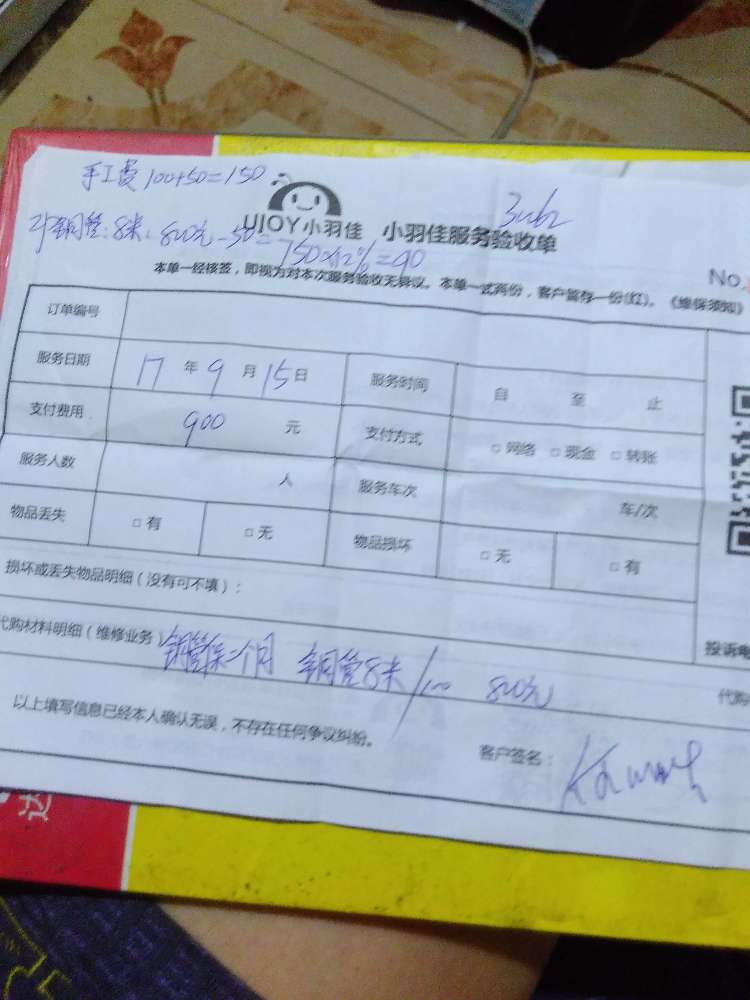 手工费 100+50=150
UJOY小羽佳 小羽佳服务验收单
铜管:8米、800元-50=750×12%=90
No.
本单一经核签，即视为对本次服务验收无异议。本单一式两份，客户留存一份(红)。《维保须知》
订单编号
服务日期 17年9月15日 服务时间 自 至 止
支付费用 900元 支付方式 □网络 □现金 □转账
服务人数 人 服务车次 车/次
物品丢失 □有 □无 物品损坏 □无 □有
损坏或丢失物品明细（没有可不填）：
代购材料明细（维修业务） 铜管保二个月 铜管8米/100 800元
投诉电
代购
以上填写信息已经本人确认无误，不存在任何争议纠纷。 客户签名：